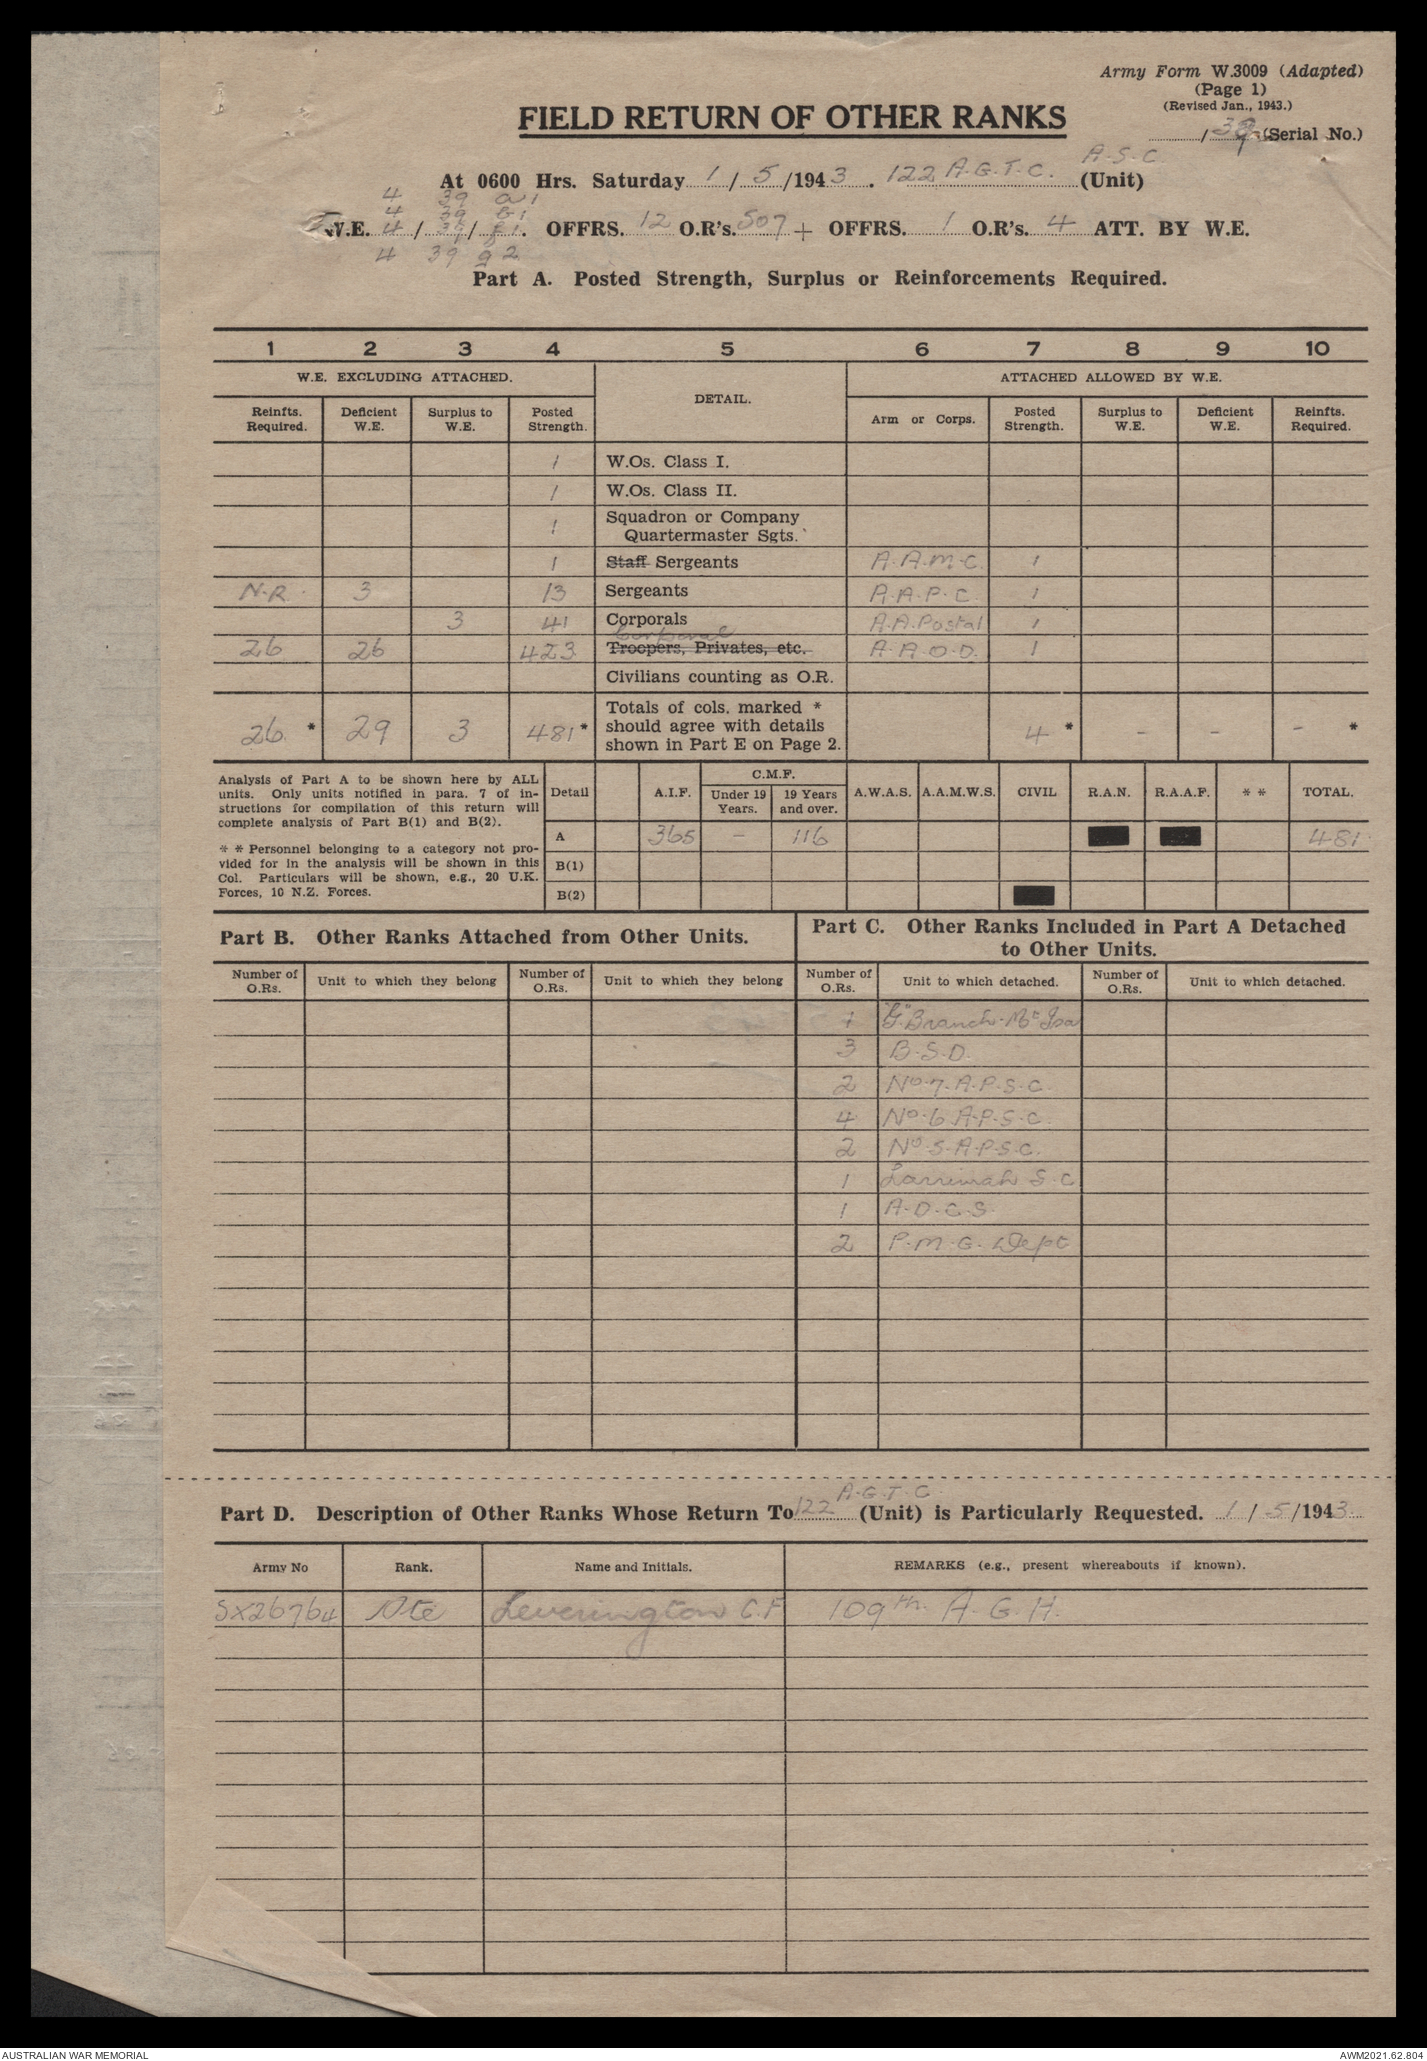 Army Form W.3009 (Adapted)
(Page 1)
(Revised Jan., 1943.)
FIELD RETURN OF OTHER RANKS
/ 39 (Serial No.)
A.S.C.
At 0600 Hrs. Saturday 1 / 5 /1943. 122 A.G.T.C. (Unit)
4 39 a 1
4 39 b 1
W.E. 4 / 39 / f 1. OFFRS. 12 O.R's. 507 + OFFRS. 1 O.R's. 4 ATT. BY W.E.
4 39 g 2
Part A. Posted Strength, Surplus or Reinforcements Required.
1 2 3 4 5 6 7 8 9 10
W.E. EXCLUDING ATTACHED. DETAIL. ATTACHED ALLOWED BY W.E.
Reinfts. Required. Deficient W.E. Surplus to W.E. Posted Strength. Arm or Corps. Posted Strength. Surplus to W.E. Deficient W.E. Reinfts. Required.
1 W.Os. Class I.
1 W.Os. Class II.
1 Squadron or Company
Quartermaster Sgts.
1 Staff Sergeants A.A.M.C. 1
N.R. 3 13 Sergeants A.A.P.C. 1
3 41 Corporals A.A.Postal 1
Corporal
26 26 423 Troopers, Privates, etc. A.A.O.D. 1
Civilians counting as O.R.
26 * 29 3 481 * Totals of cols. marked *
should agree with details
shown in Part E on Page 2. 4 * - - - *
Analysis of Part A to be shown here by ALL
units. Only units notified in para. 7 of in-
structions for compilation of this return will
complete analysis of Part B(1) and B(2).
* * Personnel belonging to a category not pro-
vided for in the analysis will be shown in this
Col. Particulars will be shown, e.g., 20 U.K.
Forces, 10 N.Z. Forces.
Detail A.I.F. C.M.F. Under 19 Years. 19 Years and over. A.W.A.S. A.A.M.W.S. CIVIL R.A.N. R.A.A.F. * * TOTAL.
A 365 - 116 481
B(1)
B(2)
Part B. Other Ranks Attached from Other Units.
Part C. Other Ranks Included in Part A Detached
to Other Units.
Number of O.Rs. Unit to which they belong Number of O.Rs. Unit to which they belong Number of O.Rs. Unit to which detached. Number of O.Rs. Unit to which detached.
1 "G" Branch - Mt Isa
3 B.S.D.
2 No 7. A.P.S.C.
4 No 6 A.P.S.C.
2 No 5 A.P.S.C.
1 Larrimah S.C
1 A.D.C.S.
2 P.M.G. Dept
Part D. Description of Other Ranks Whose Return To 122 A.G.T.C. (Unit) is Particularly Requested. 1 / 5 /1943
Army No Rank. Name and Initials. REMARKS (e.g., present whereabouts if known).
SX26764 Pte Leverington C.F 109th A.G.H.
AUSTRALIAN WAR MEMORIAL
AWM2021.62.804